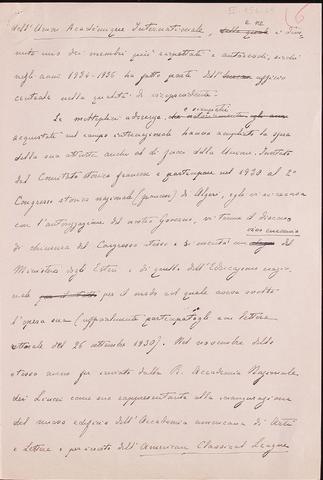 6
e ne
dell'Union Académique Internationale, è dive-
nuto uno dei membri più ascoltati e autorevoli, sicchè
negli anni 1934-1936 ha fatto parte dell' ufficio
centrale nella qualità di vicepresidente.
e simpatie
Le molteplici aderenze
acquistate nel campo internazionale hanno ampliato la sfera
della sua attività anche al di fuori della Unione. Invitato
dal Comitato storico francese a partecipare nel 1930 al 2°
Congresso storico nazionale (francese) di Algeri, egli vi si recava
con l'autorizzazione del nostro Governo, vi tenne il discorso
vivo encomio
di chiusura del Congresso stesso e si meritò un del
Ministero degli Esteri e di quello dell'Educazione nazio-
nale per il modo col quale aveva svolto
l'opera sua (ufficialmente partecipatogli con lettera
del 26 settembre 1930). Nel novembre dello
stesso anno fu inviato dalla R. Accademia Nazionale
dei Lincei come suo rappresentante alla inaugurazione
del nuovo edificio dell'Accademia americana di Arti
e Lettere e invitato dell'American Classical League